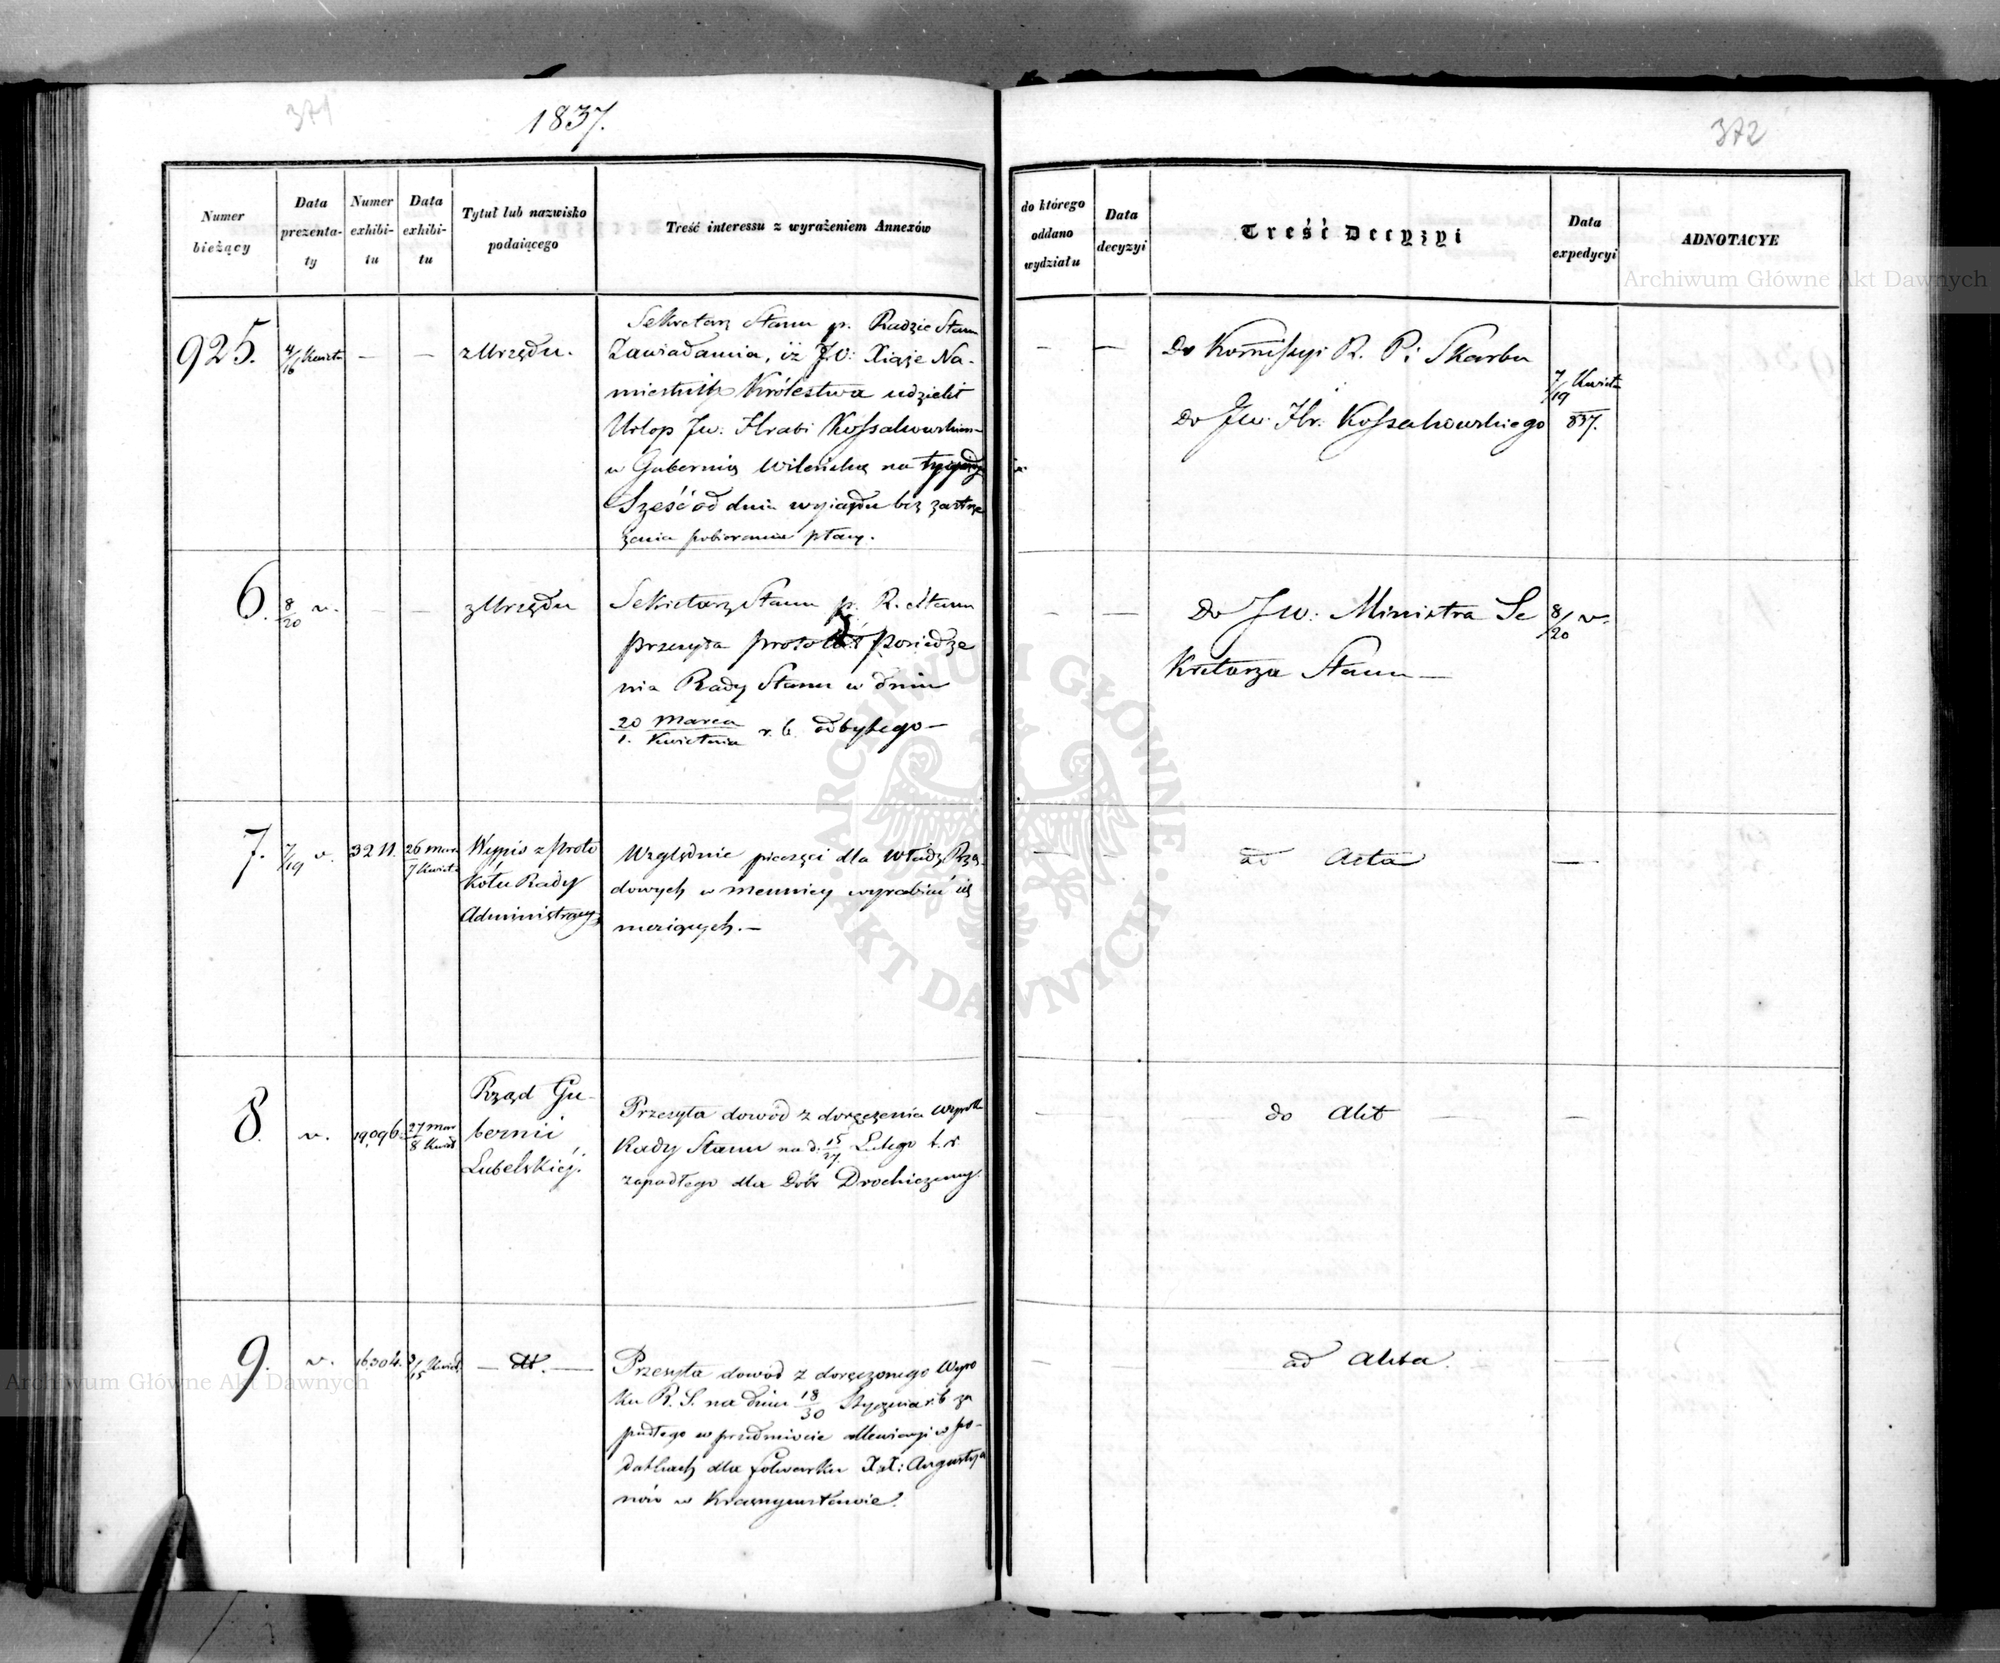 371
1837.
372
Numer bieżący
Data prezenta-ty
Numer exhibi-tu
Data exhibi-tu
Tytuł lub nazwisko podaiącego
Treść interessu z wyrażeniem Annexów
do którego oddano wydziału
Data decyzyi
Treść Decyzyi
Data expedycyi
ADNOTACYE
925.
4/16 Kwiet
—
—
z Urzędu.
Sekretarz Stanu p. Radzie Stanu
Zawiadamia, iż JO: Xiąże Na-
miestnik Królestwa udzielił
Urlop Jw. Hrabi Kossakowskiem
w Gubernią Wileńską na
Sześć od dnia wyiazdu bez zastrze
żenia pobierania płacy.
—
—
Do Kommissyi R. P. i Skarbu
Do Jw. Hr. Kossakowskiego
7/19 Kwiet
837.
6.
8/20 v.
—
—
z Urzędu
Sekretarz Stanu p. R. Stanu
przesyła posiedze
nia Rady Stanu w dniu
20 Marca / 1. Kwietnia r. b. odbytego —
—
—
Do Jw. Ministra Se
kretarza Stanu —
8/20 v.
7.
7/19 v.
3211.
26 Mar / 7 Kwiet
Wypis z Proto
kółu Rady
Administracyj
Względnie pieczęci dla Władz Rzą-
dowych w mennicy wyrabiać się
maiących. —
—
—
ad Acta
—
8.
v.
19096.
27 Mar / 8 Kwiet
Rząd Gu-
bernii
Lubelskiéj.
Przesyła dowód z doręczenia Wyroku
Rady Stanu na d. 15/27 Lutego t. r.
zapadłego dla Dóbr
—
do Akt
—
9.
v.
16304.
3/15 Kwiet.
— dt. —
Przesyła dowód z doręczonego Wyro
ku R. S. na dniu 18/30 Stycznia r. b. za
padłego w przedmiocie allewiacyi w po-
datkach dla folwarku XX: Augustya
nów w Krasnymstawie.
—
ad Akta.
—
Archiwum Główne Akt Dawnych
Archiwum Główne Akt Dawnych
ARCHIWUM GŁÓWNE
AKT DAWNYCH